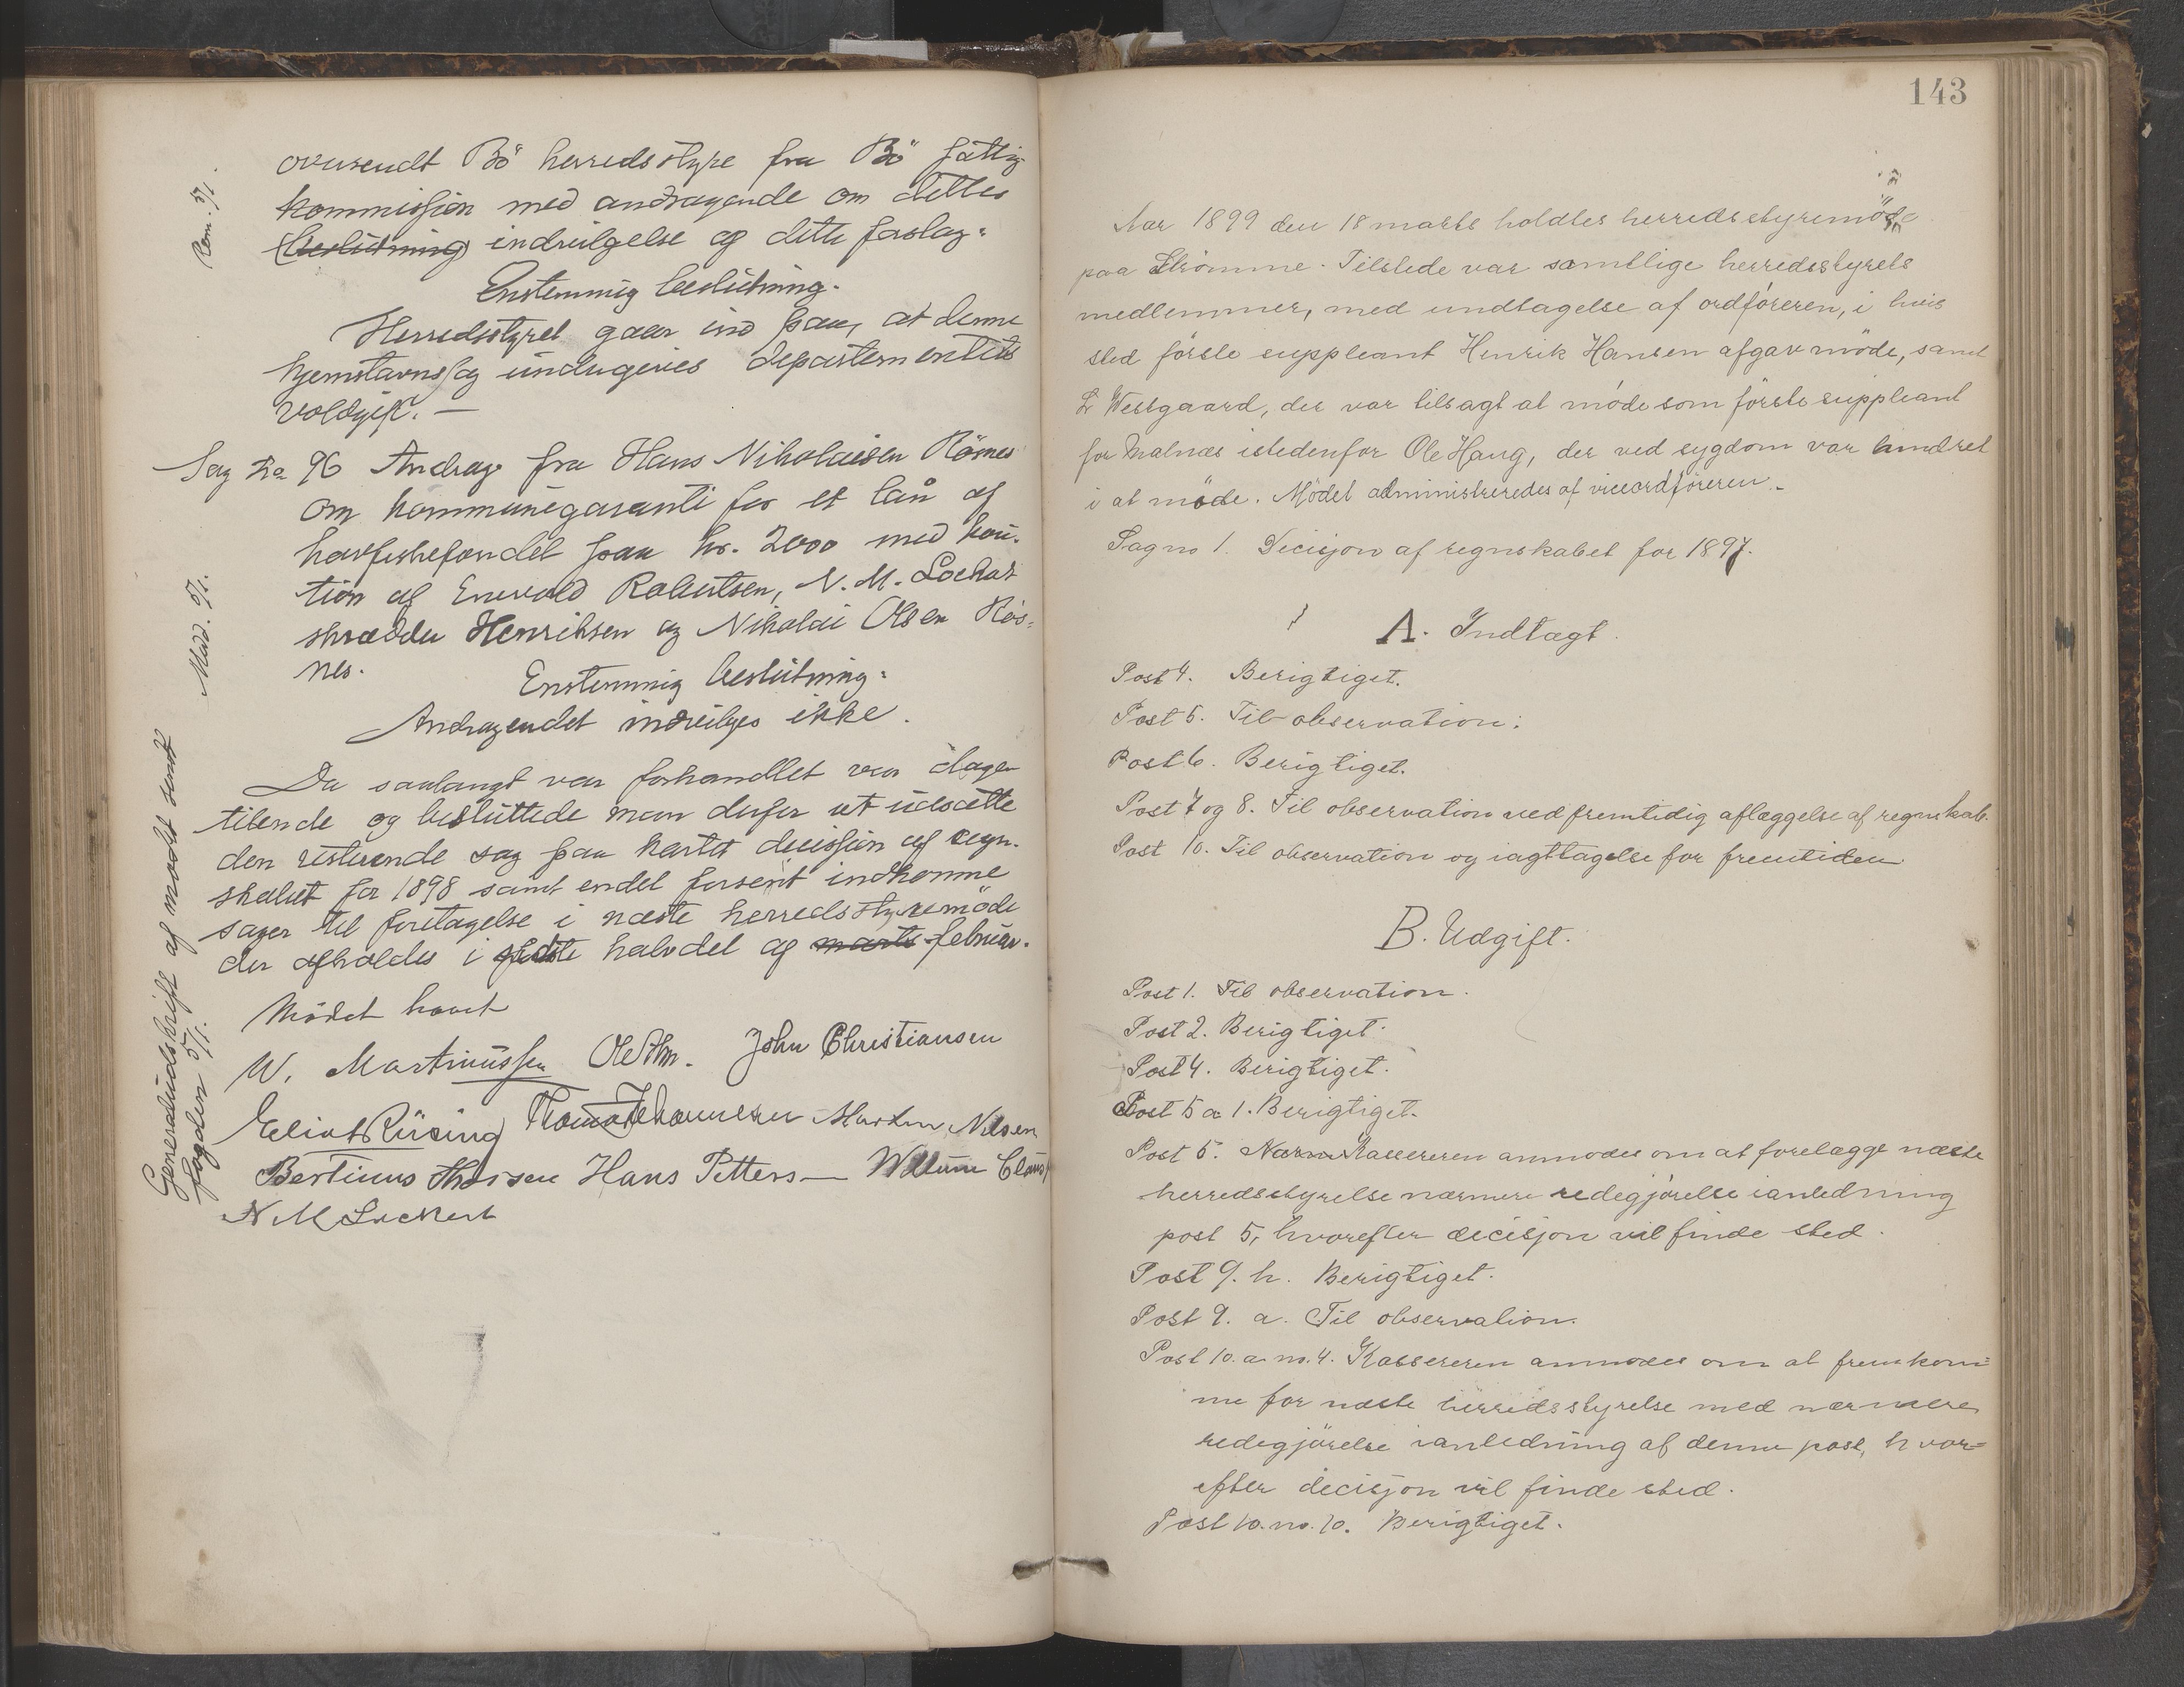 oversendt Bö herredsstyre fra Bö fattig
kommission med andragende om dettes
(beslutning) indvilgelse af dette forslag.
Enstemmig beslutning.
Herredsstyret gaar ind paa, at denne
hjemstavnssag undergives departementets
voldgift. —
Sag No 96 Andrag fra Hans Nikolaisen
om kommunegaranti for et lån af
havfiskefondet paa kr. 2000 med kau-
tion af Enevold Robertsen, N. M. Lockert
skrædder Henriksen og Nikolai Olsen Rös-
nes.
Enstemmig beslutning.
Andragendet indvilges ikke.
Da saalangt var forhandlet var dagen
tilende og besluttede man derfor at udsætte
den resterende sag paa kartet decission af regn-
skabet for 1898 samt endel forsent indkomne
sager til foretagelse i næste herredsstyremöde
der afholdes i halvdel af marts februar.
Mödet hævet
W. Martinussen John Christiansen
Eliot Rüsing Thomas Johannesen Martin Nilsen
Bertinus Thorsen Hans Petters— Willum Claus
N M Lockert
Rem. 5/1.
Medd. 5/1.
Generaludskrift af mödet sendt
fogden 5/1.
143
Aar 1899 den 18 marts holdtes herredsstyremöde
paa Strömme. Tilstede var samtlige herredsstyrets
medlemmer, med undtagelse af ordföreren, i hvis
sted förste suppleant Henrik Hansen afgav möde, samt
L Westgaard, der var tilsagt at möde som förste suppleant
for Malnæs istedenfor Ole Haug, der ved sygdom var hindret
i at möde. Mödet administreredes af viceordföreren.
Sag no 1. Decisjon af regnskabet for 1897.
A. Indtægt.
Post 4. Berigtiget.
Post 5. Til observation.
Post 6. Berigtiget.
Post 7 og 8. Til observation ved fremtidig aflæggelse af regnskab.
Post 10. Til observation og iagttagelse for fremtiden
B. Udgift.
Post 1. Til observation.
Post 2. Berigtiget.
Post 4. Berigtiget.
Post 5 a 1. Berigtiget.
Post 5. Kassereren anmodes om at forelægge næste
herredsstyrelse nærmere redegjörelse ianledning
post 5, hvorefter decisjon vil finde sted.
Post 9. h. Berigtiget.
Post 9. a. Til observation.
Post 10. a. no. 4. Kassereren anmodes om at fremkom=
me for næste herredsstyrelse med nærmere
redegjörelse ianledning af denne post, hvor=
efter decisjon vil finde sted.
Post 10. no. 10. Berigtiget.